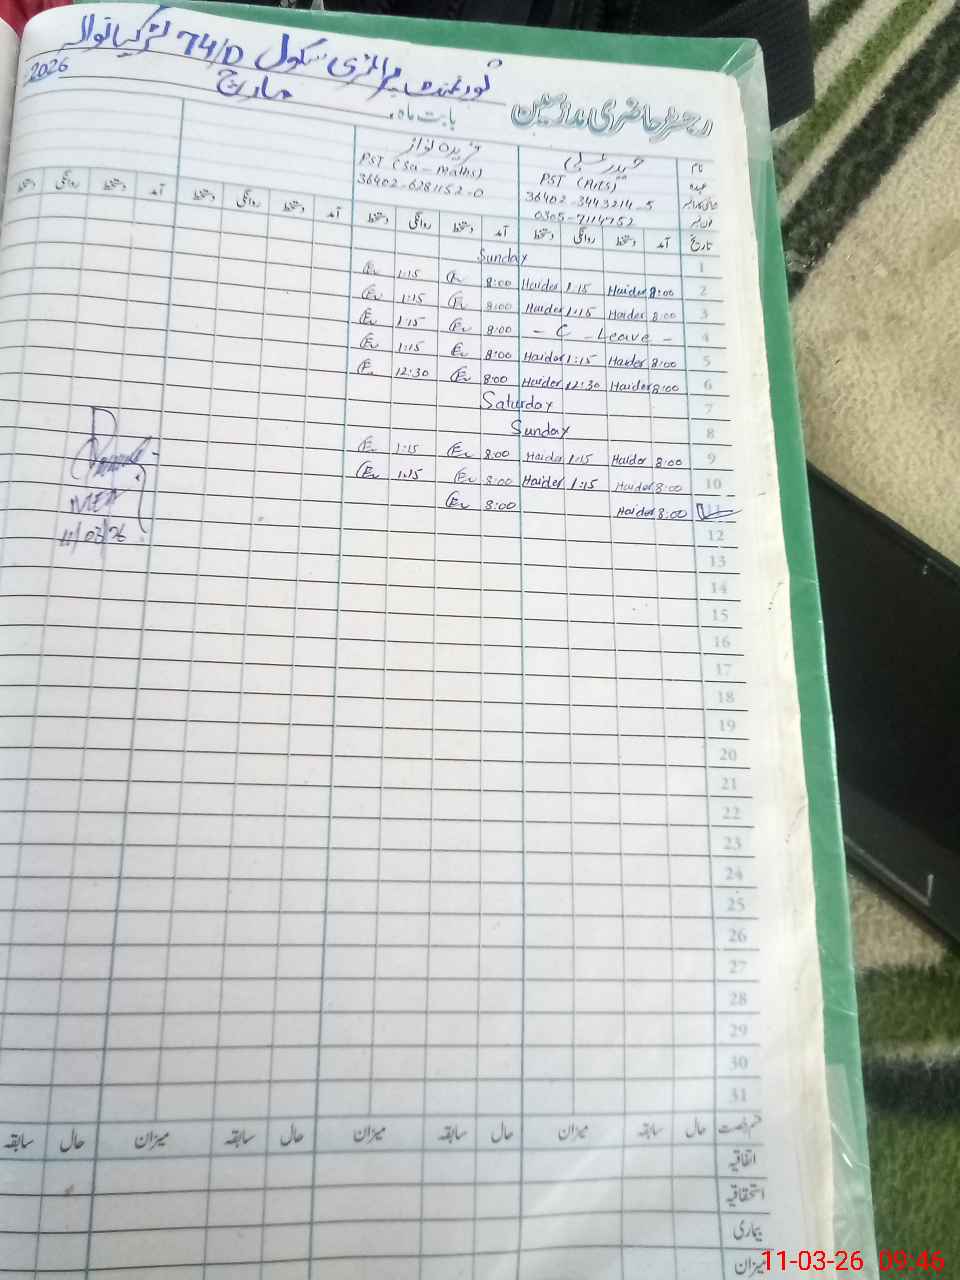 گورنمنٹ پرائمری سکول 74/D لڑکیانوالہ
رجسٹر حاضری مدرسین بابت ماہ مارچ 2026
نام حیدر علی
عہدہ PST (Arts) PST (Sci - Maths)
36402-3443214-5 36402-6281152-0
0305-7114752
تاریخ آمد دستخط روانگی دستخط آمد دستخط روانگی دستخط آمد دستخط روانگی دستخط آمد دستخط روانگی دستخط
1 Sunday
2 8:00 Haider 1:15 Haider 8:00 1:15
3 8:00 Haider 1:15 Haider 8:00 1:15
4 - C - Leave - 8:00 1:15
5 8:00 Haider 1:15 Haider 8:00 1:15
6 8:00 Haider 12:30 Haider 8:00 12:30
7 Saturday
8 Sunday
9 8:00 Haider 1:15 Haider 8:00 1:15
10 8:00 Haider 1:15 Haider 8:00 1:15
11 8:00 Haider 8:00
11/03/26
12
13
14
15
16
17
18
19
20
21
22
23
24
25
26
27
28
29
30
31
قسم رخصت حال سابقہ میزان حال سابقہ میزان حال سابقہ میزان حال سابقہ
اتفاقیہ
استحقاقیہ
بیماری
میزان
11-03-26 09:46